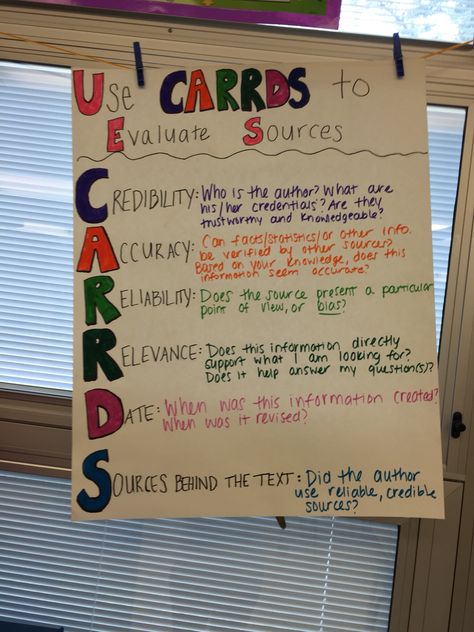 Use CARRDS to
Evaluate Sources
CREDIBILITY: Who is the author? What are
his/her credentials? Are they
trustworthy and knowledgeable?
ACCURACY: Can facts/statistics/or other info.
be verified by other sources?
Based on your knowledge, does this
information seem accurate?
RELIABILITY: Does the source present a particular
point of view, or bias?
RELEVANCE: Does this information directly
support what I am looking for?
Does it help answer my question(s)?
DATE: When was this information created?
When was it revised?
SOURCES BEHIND THE TEXT: Did the author
use reliable, credible
sources?